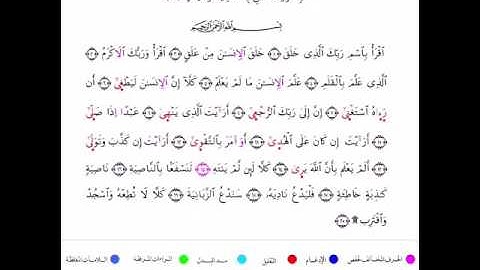 بِسْمِ اللَّهِ الرَّحْمَٰنِ الرَّحِيمِ
اَقْرَأْ بِاسْمِ رَبِّكَ الَّذِى خَلَقَ ۝١ خَلَقَ الْاِنسَٰنَ مِنْ عَلَقٍ ۝٢ اَقْرَأْ وَرَبُّكَ الْاَكْرَمُ ۝٣
الَّذِى عَلَّمَ بِالْقَلَمِ ۝٤ عَلَّمَ الْاِنسَٰنَ مَا لَمْ يَعْلَمْ ۝٥ كَلَّآ إِنَّ الْاِنسَٰنَ لَيَطْغَىٰٓ ۝٦ أَن
رَّءَاهُ اسْتَغْنَىٰٓ ۝٧ إِنَّ إِلَىٰ رَبِّكَ الرُّجْعَىٰٓ ۝٨ أَرَآيْتَ الَّذِى يَنْهَىٰ ۝٩ عَبْدًا اِذَا صَلَّىٰٓ
۝١٠ أَرَآيْتَ إِن كَانَ عَلَى الْهُدَىٰٓ ۝١١ أَوَ اَمَرَ بِالتَّقْوَىٰٓ ۝١٢ أَرَآيْتَ إِن كَذَّبَ وَتَوَلَّىٰٓ
۝١٣ أَلَمْ يَعْلَم بِأَنَّ اللَّهَ يَرَىٰ ۝١٤ كَلَّا لَئِن لَّمْ يَنتَهِ ۝١٥ لَنَسْفَعًۢا بِالنَّاصِيَةِ نَاصِيَةٍ
كَٰذِبَةٍ خَاطِئَةٍ ۝١٦ فَلْيَدْعُ نَادِيَهُۥ ۝١٧ سَنَدْعُ الزَّبَانِيَةَ ۝١٨ كَلَّا لَا تُطِعْهُ وَاسْجُدْ
وَاقْتَرِب ۩ ۝
الإدغام
التقليل
مد البدل